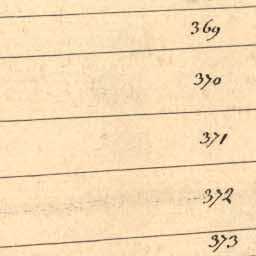 369
370
371
372
373